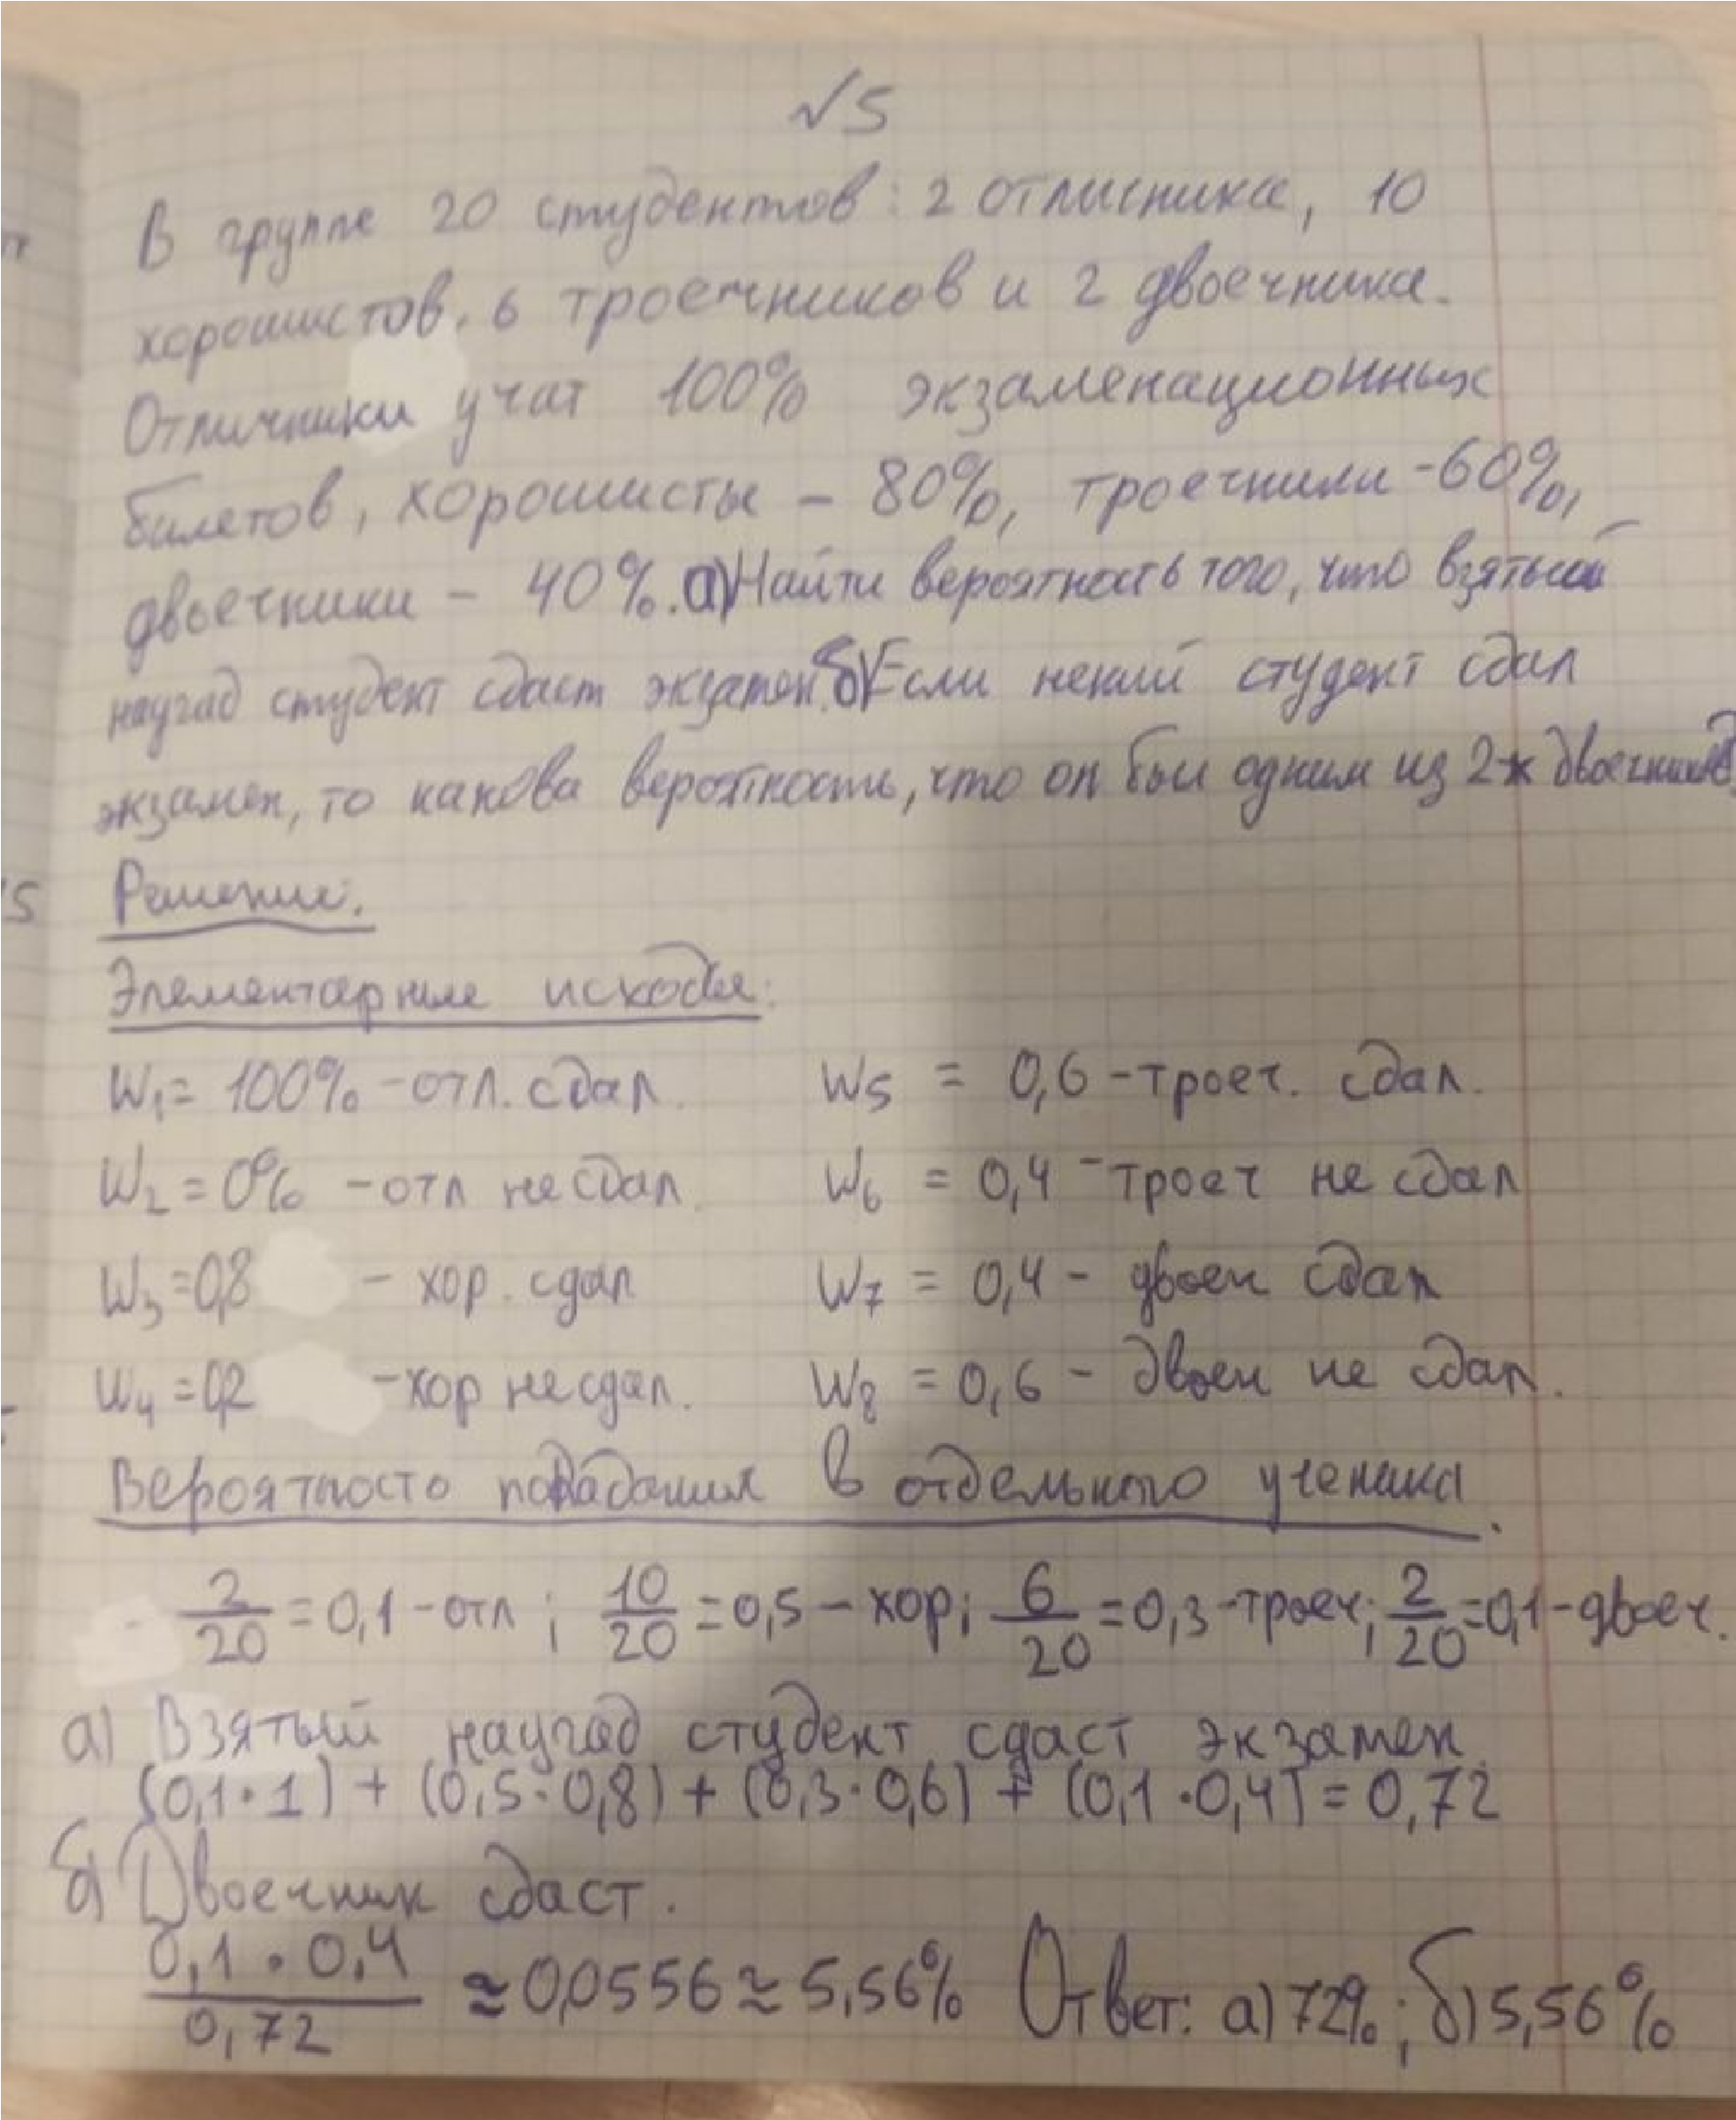 √5
В группе 20 студентов: 2 отличника, 10
хорошистов, 6 троечников и 2 двоечника.
Отличники учат 100% экзаменационных
билетов, хорошисты – 80%, троечники - 60%,
двоечники – 40%. а) Найти вероятность того, что взятый
наугад студент сдаст экзамен. б) Если некий студент сдал
экзамен, то какова вероятность, что он был одним из 2х двоечников.
Решение.
Элементарные исходы:
W₁ = 100% - отл. сдал.
W₂ = 0% - отл не сдал.
W₃ = 0,8 - хор. сдал
W₄ = 0,2 - хор не сдал.
W₅ = 0,6 - троеч. сдал.
W₆ = 0,4 - троеч не сдал
W₇ = 0,4 - двоеч сдал
W₈ = 0,6 - двоеч не сдал.
Вероятность попадания в отдельного ученика.
2/20 = 0,1 - отл; 10/20 = 0,5 - хор; 6/20 = 0,3 - троеч; 2/20 = 0,1 - двоеч.
а) Взятый наугад студент сдаст экзамен.
(0,1·1) + (0,5·0,8) + (0,3·0,6) + (0,1·0,4) = 0,72
б) Двоечник сдаст.
0,1·0,4/0,72 ≈ 0,0556 ≈ 5,56% Ответ: а) 72%; б) 5,56%